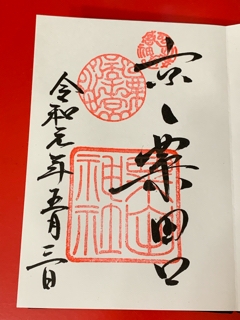 京、粟田口
粟田
神社
令和元年五月三日